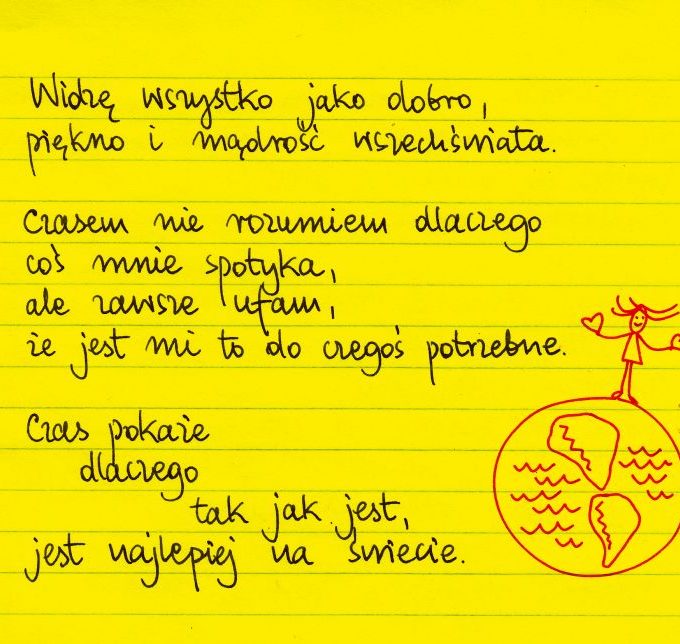 Widzę wszystko jako dobro,
piękno i mądrość wszechświata.
Czasem nie rozumiem dlaczego
coś mnie spotyka,
ale zawsze ufam,
że jest mi to do czegoś potrzebne.
Czas pokaże
dlaczego
tak jak jest,
jest najlepiej na świecie.